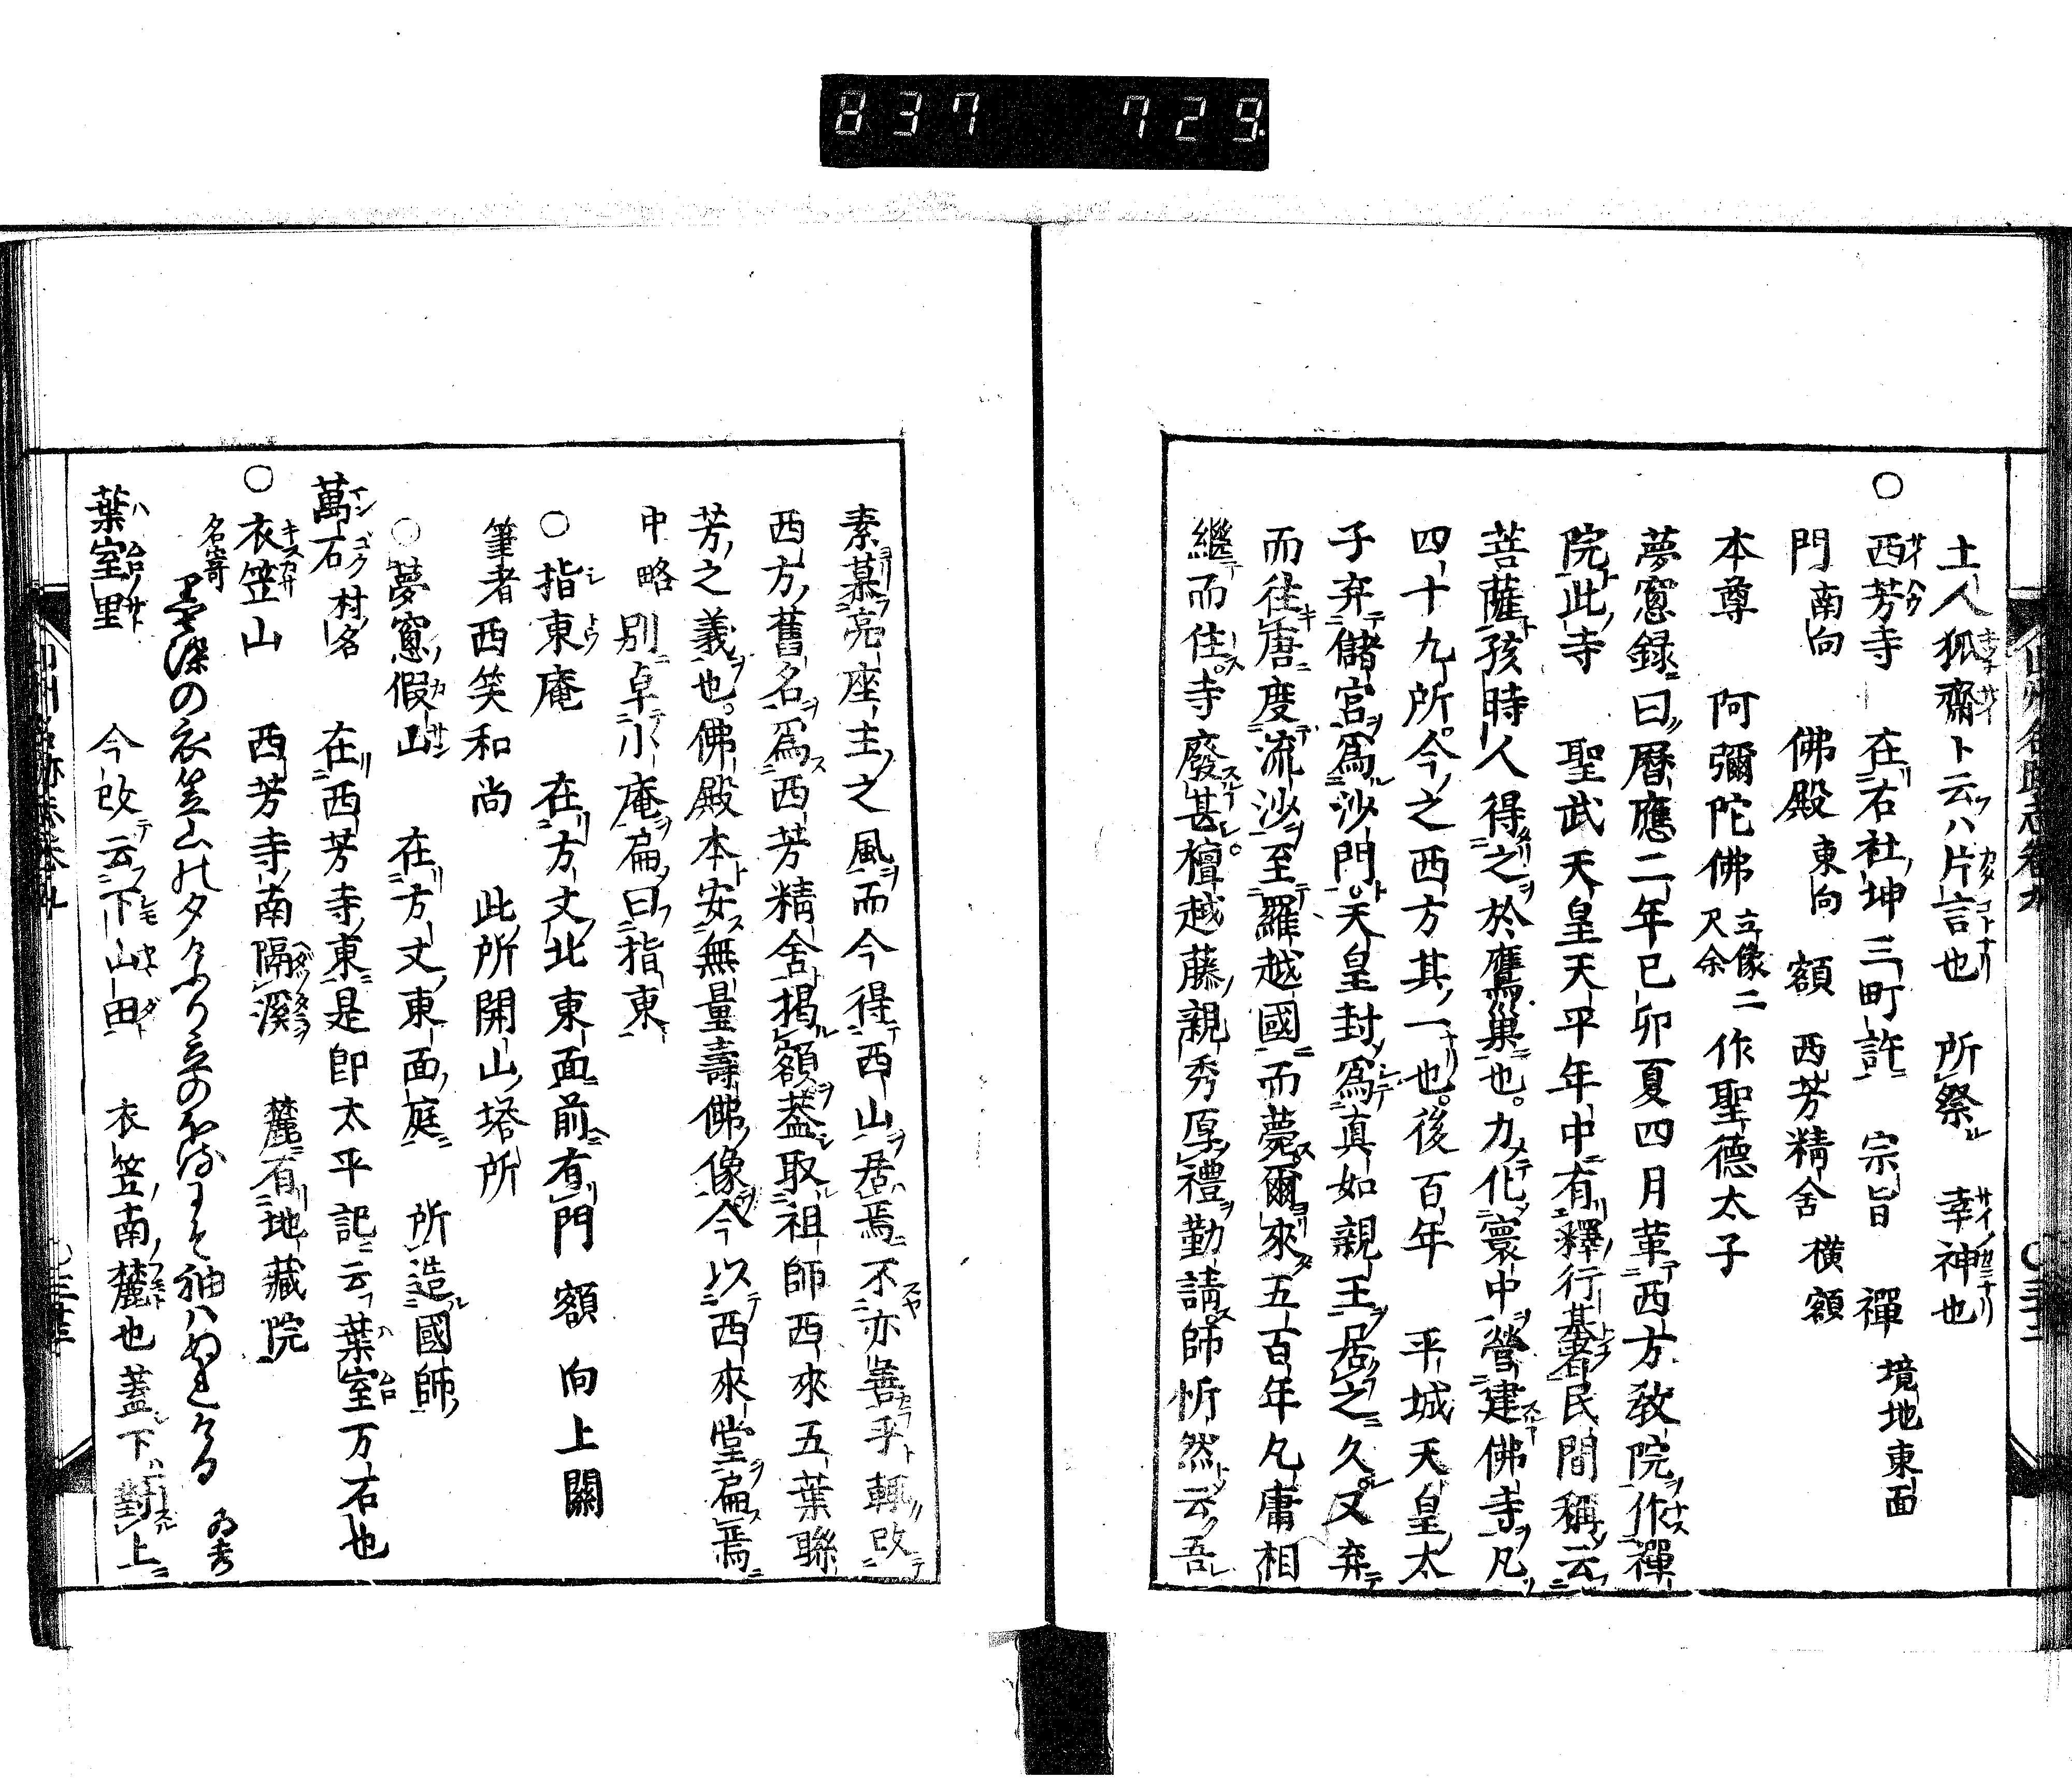 837 729
土人狐齋ト云ハ片言也 所祭 幸神也
○西芳寺 在右社坤三町許 宗旨 禪 境地東面
門南向 佛殿東向 額 西芳精舍 橫額
本尊 阿彌陀佛 立像二尺余 作聖德太子
夢窓録曰曆應二年已卯夏四月革西方教院作禪
院此寺 聖武天皇天平年中有釋行基者民間稱云
菩薩孩時人得之於鷹巢也。力化寰中營建佛寺凡
四十九所。今之西方其一也。後百年 平城天皇太
子弃儲宮爲沙門。天皇封爲真如親王居之久又弃
而徃唐度流沙至羅越國而薨爾來五百年凡庸相
繼而住。寺廢甚。檀越藤親秀厚禮勤請師忻然云吾
素慕亮座主之風而今得西山居焉不亦善乎輒改
西方舊名爲西芳精舍揭額蓋取祖師西來五葉聯
芳之義也。佛殿本安無量壽佛像今以西來堂扁焉
中略 別卓小庵扁曰指東
○指東庵 在方丈北東面前有門 額 向上關
筆者西笑和尚 此所開山塔所
○夢窓假山 在方丈東面庭 所造國師
萬石村名 在西芳寺東是即太平記云葉室万石也
○衣笠山 西芳寺南隔溪 麓有地藏院
名寄 墨染の衣笠山の夕 立の 袖ハぬれける
葉室里 今改云下山田 衣笠南麓也蓋下對上